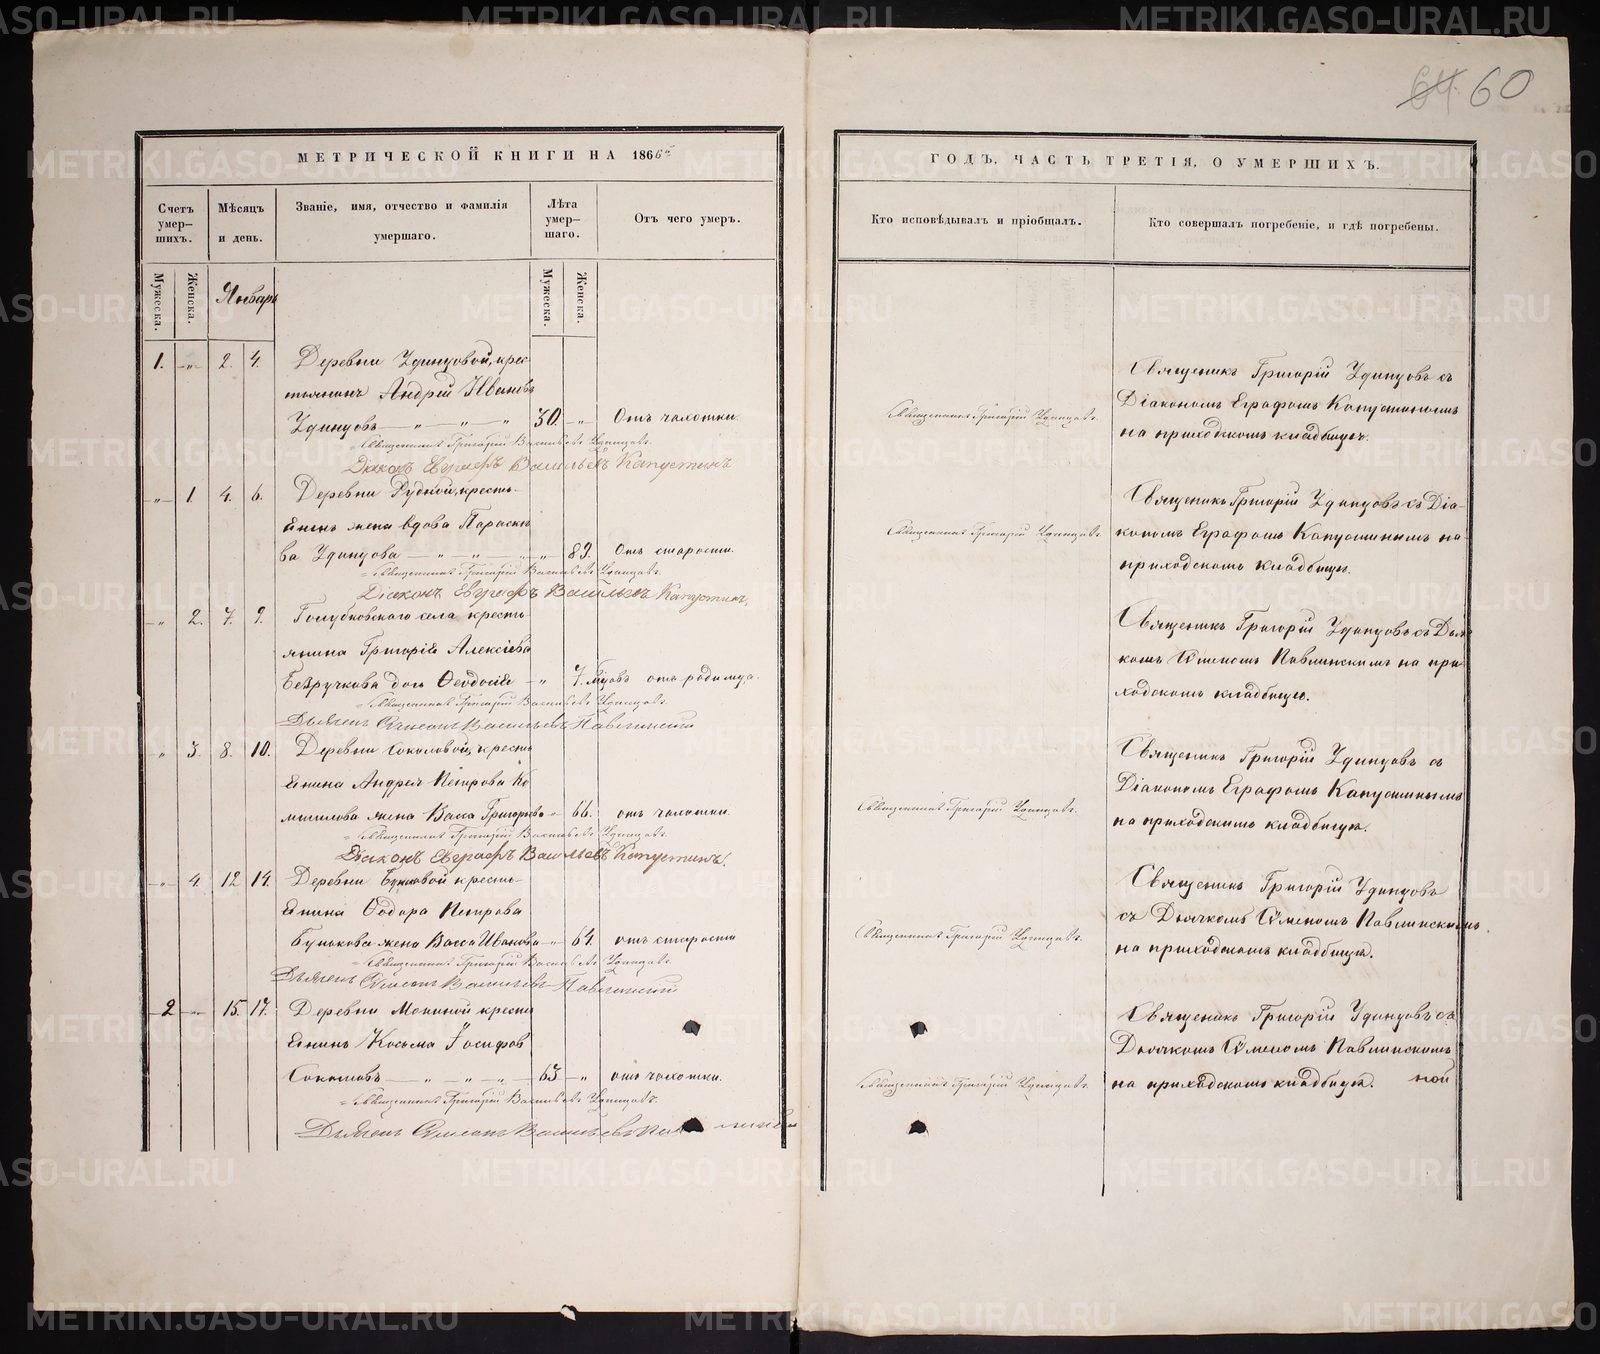 60
МЕТРИЧЕСКОЙ КНИГИ НА 1866й
Счетъ умер-шихъ.
Мѣсяцъ и день.
Званіе, имя, отчество и фамилія умершаго.
Лѣта умер-шаго.
Отъ чего умеръ.
Мужеска.
Женска.
Январь
Мужеска.
Женска.
1. -„- 2. 4. Деревни Удинцовой, крес-
тьянинъ Андрей Ивановъ
Удинцовъ — „ — „ — „ 30. -„- Отъ чахотки.
Священникъ Григорій Васильевъ Удинцовъ.
Діаконъ Евграфъ Васильевъ Капустинъ
-„- 1. 4. 6. Деревни Рудной, кресть-
янинъ жена вдова Параске
ва Удинцова — „ — „ — „ 89. Отъ старости.
Священникъ Григорій Васильевъ Удинцовъ.
Діаконъ Евграфъ Васильевъ Капустинъ.
-„ 2. 7. 9. Голубковскаго села кресть
янина Григорія Алексіева
Безручкова дочь Феодосія — „ 7. мѣ отъ родимца.
Священникъ Григорій Васильевъ Удинцовъ.
Дьячекъ Симеонъ Васильевъ Павлинскій
„ 3. 8. 10. Деревни Соколовой, кресть
янина Андрея Петрова Ко
жена Васса Григорьева „ 66. отъ чахотки.
Священникъ Григорій Васильевъ Удинцовъ.
Діаконъ Евграфъ Васильевъ Капустинъ.
-„- 4. 12 14. Деревни Буньковой кресть-
янина Ѳедора Петрова
Бунькова жена Васса Иванова -„- 64. отъ старости
Священникъ Григорій Васильевъ Удинцовъ.
Дьячекъ Симеонъ Васильевъ Павлинскій
2 -„- 15. 17. Деревни Мокиной кресть
янинъ Косьма Іосифов
Соколовъ — „ — „ — „ — 63 -„ отъ чахотки.
Священникъ Григорій Васильевъ Удинцовъ.
Дьячекъ Симеонъ Васильевъ
ГОДЪ, ЧАСТЬ ТРЕТІЯ, О УМЕРШИХЪ.
Кто исповѣдывалъ и пріобщалъ.
Кто совершалъ погребеніе, и гдѣ погребены.
Священникъ Григорій Удинцовъ съ
Діакономъ Еграфомъ Капустинымъ
Священникъ Григорій Удинцовъ.
на приходскомъ кладбищѣ.
Священикъ Григорій Удинцовъ съ Діа-
Священникъ Григорій Удинцовъ.
кономъ Еграфомъ Капустинымъ на
приходскомъ кладбищѣ.
Священикъ Григорій Удинцовъ съ Дья
комъ Симеономъ Павлинскимъ на при
ходскомъ кладбищѣ.
Священикъ Григорій Удинцовъ съ
Діакономъ Еграфомъ Капустинымъ
Священникъ Григорій Удинцовъ.
на приходскомъ кладбищѣ.
Священикъ Григорій Удинцовъ
съ Дьячкомъ Симеономъ Павлинскимъ
Священникъ Григорій Удинцовъ.
на приходскомъ кладбищѣ.
Священикъ Григорій Удинцовъ съ
Дьячкомъ Симеономъ Павлинскимъ
Священникъ Григорій Удинцовъ.
на приходскомъ кладбищѣ.
METRIKI.GASO-URAL.RU